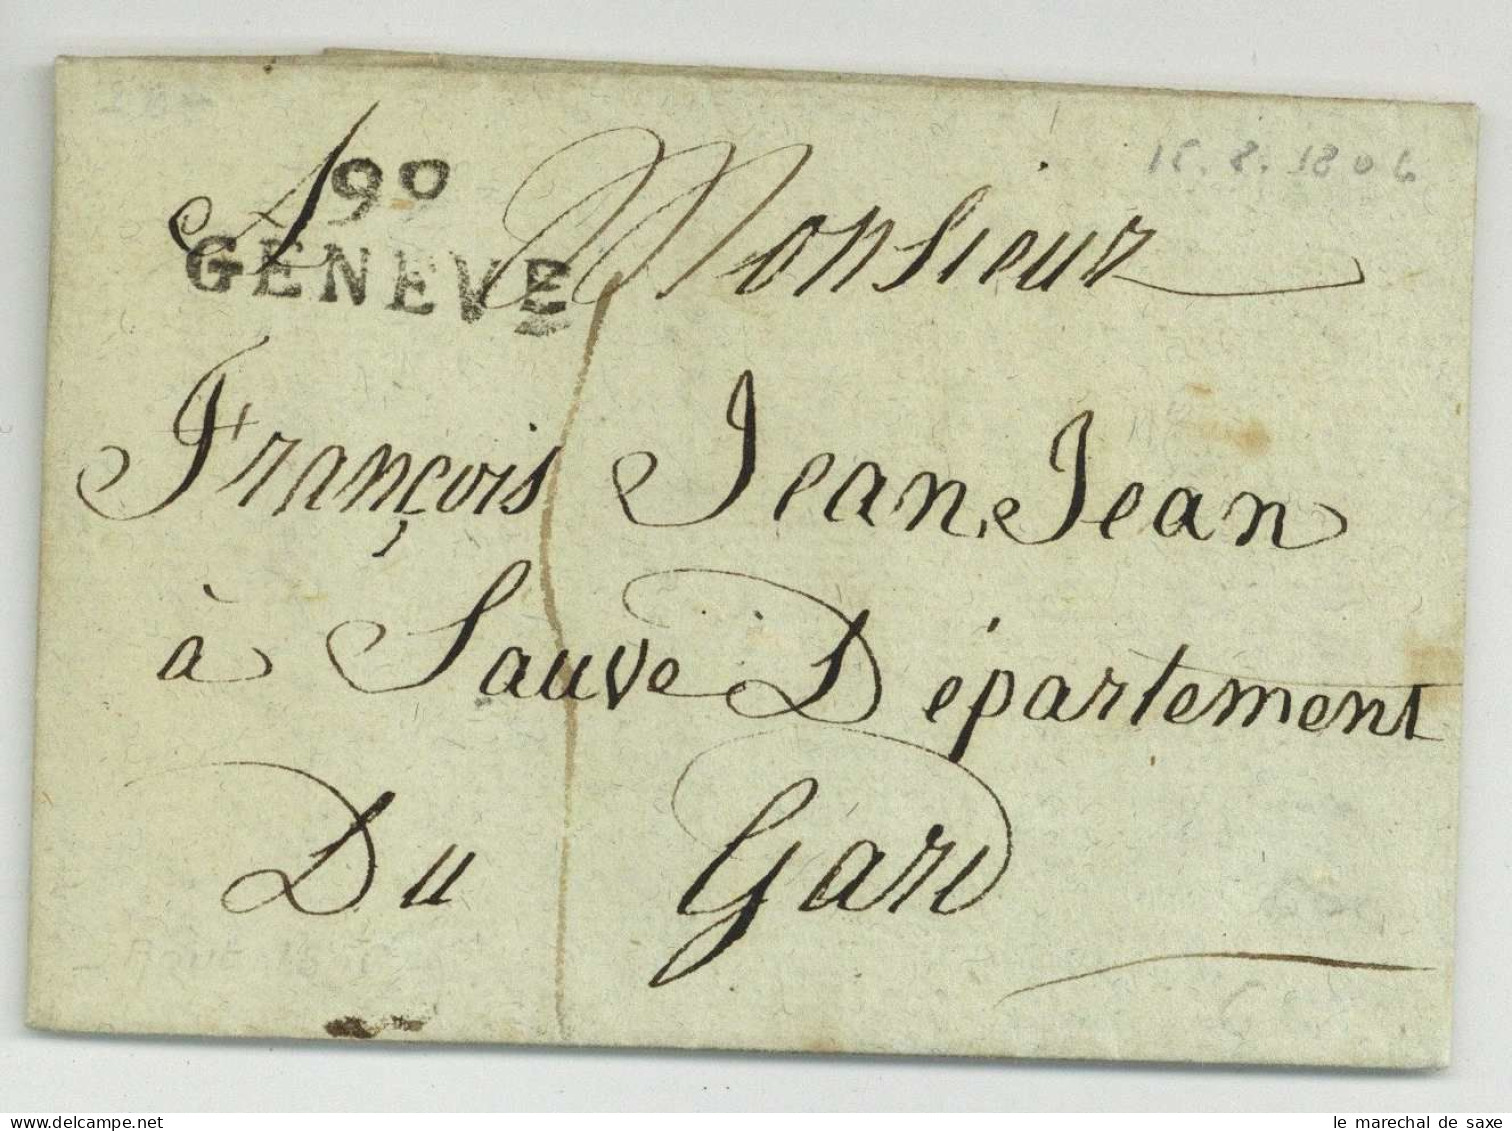 15. 8. 1806
A Monsieur
99
GENEVE
François Jean Jean
à Sauve Département
Du Gard
le marechal de saxe